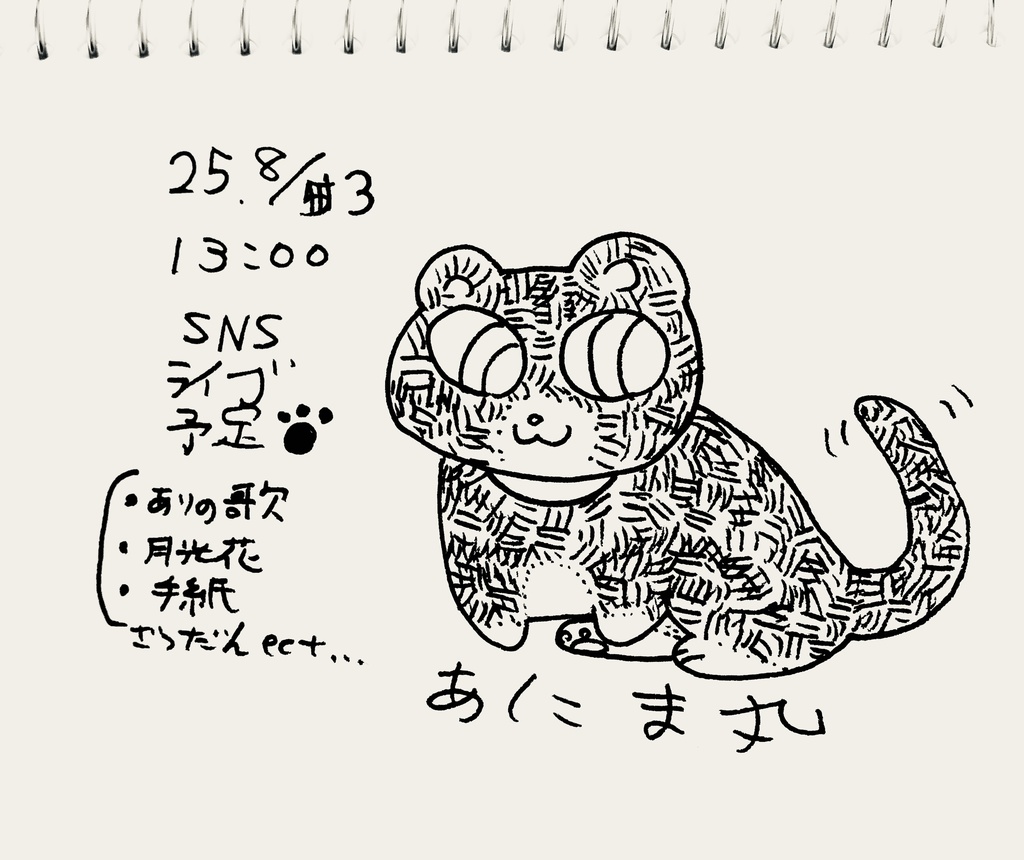 25.8/3
13:00
SNS
ライブ
予定
・ありの歌
・月光花
・手紙
ect...
あにま丸